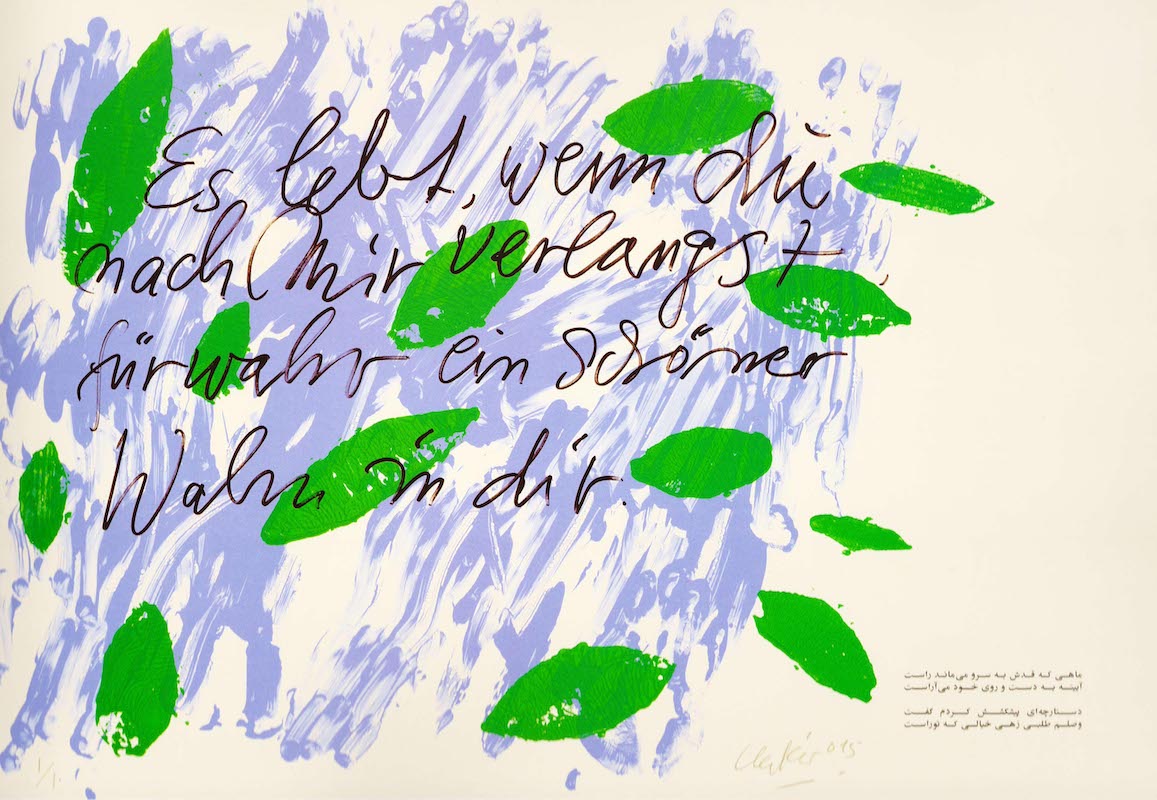 Es lebt, wenn du
nach mir verlangst,
fürwahr ein schöner
Wahn in dir.
ماهی که قدش به سرو می‌ماند راست
آیینه به دست و روی خود می‌آراست
دستارچه‌ای پیشکشش کردم گفت
وصلم طلبی زهی خیالی که توراست
1/1
Uecker 015